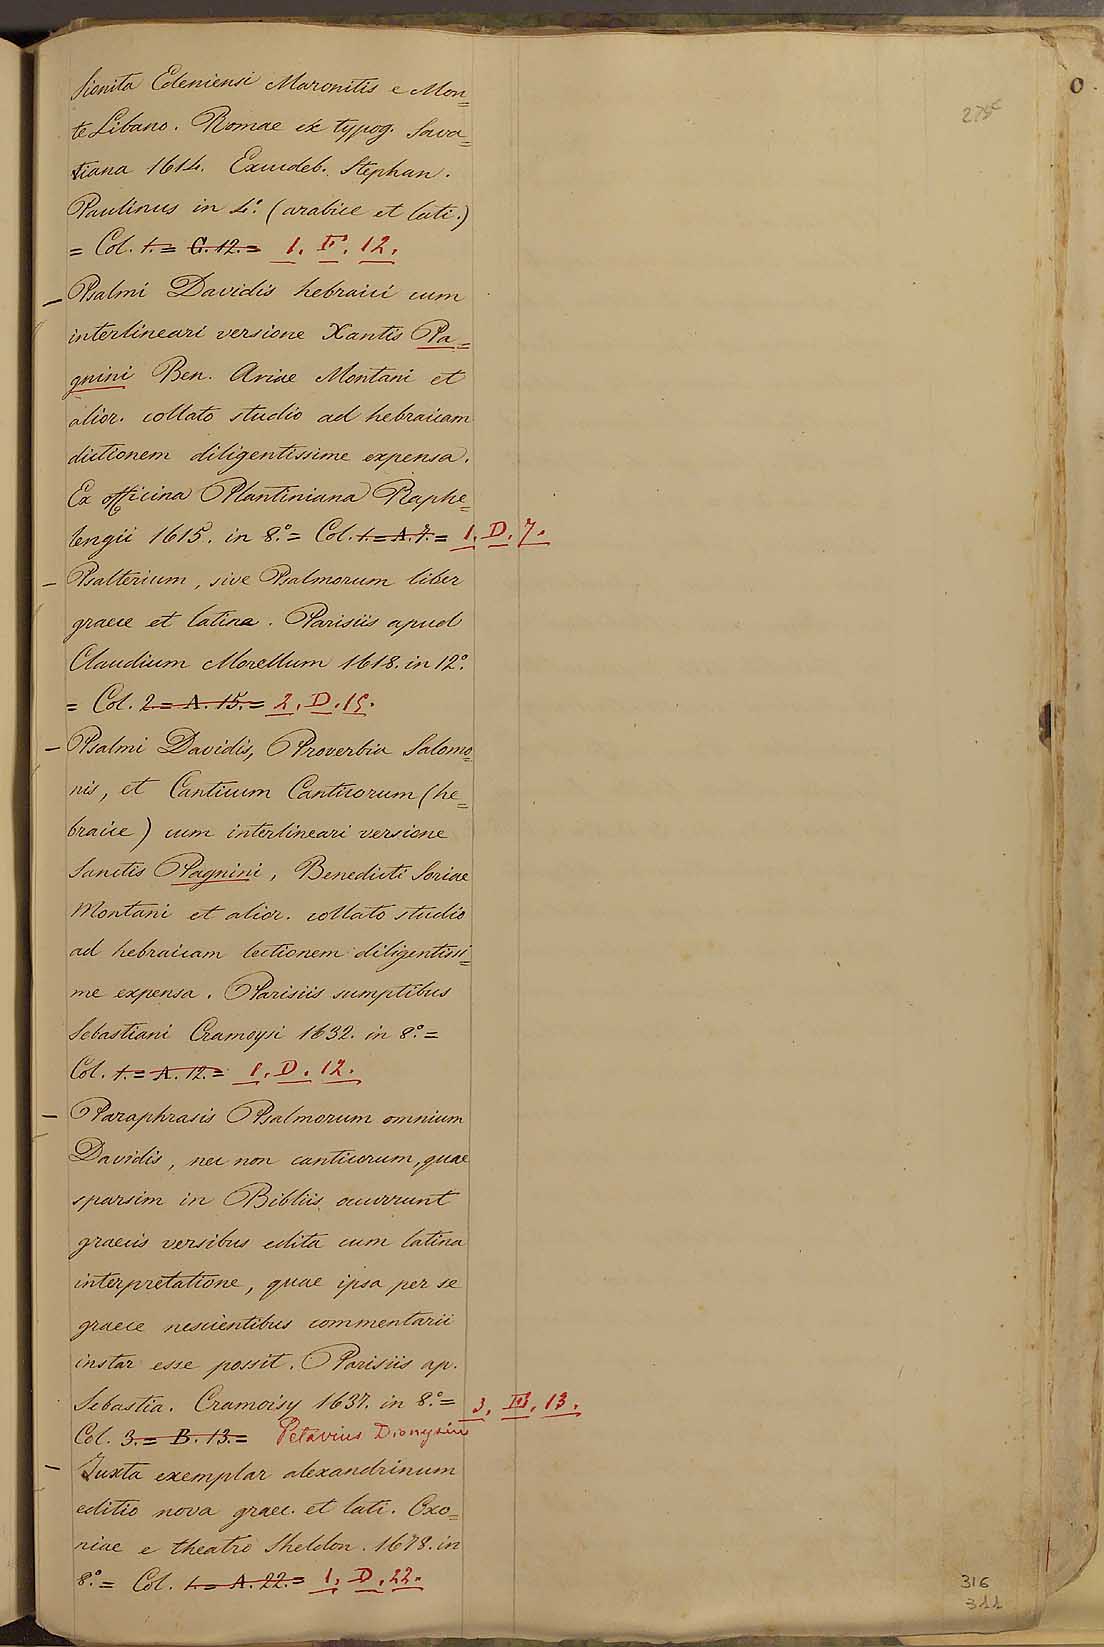 Sionita Edeniensi Maronitis e Mon=
te Libano. Romae ex typog. Sava=
riana 1614. Excudeb. Stephan.
Paulinus in 4.º (arabice et lati.)
= Col. 1.= C. 12.= 1. F. 12.
– Psalmi Davidis hebraici cum
interlineari versione Xantis Pa=
gnini Ben. Ariae Montani et
alior. collato studio ad hebraicam
dictionem diligentissime expensa.
Ex officina Plantiniana Raphe=
lengii 1615. in 8.º = Col. 1.= A. 7.= 1. D. 7.
– Psalterium, sive Psalmorum liber
graece et latine. Parisiis apud
Claudium Morellum 1618. in 12º.
= Col. 2.= A. 15.= 2. D. 15.
– Psalmi Davidis, Proverbia Salomo=
nis, et Canticum Canticorum (he=
braice) cum interlineari versione
Sanctis Pagnini, Benedicti Soriae
Montani et alior. collato studio
ad hebraicam lectionem diligentissi=
me expensa. Parisiis sumptibus
Sebastiani Cramoysi 1632. in 8.º =
Col. 1.= A. 12.= 1. D. 12.
– Paraphrasis Psalmorum omnium
Davidis, nec non canticorum, quae
sparsim in Bibliis occurrunt
graecis versibus edita cum latina
interpretatione, quae ipsa per se
graece nescientibus commentarii
instar esse possit. Parisiis ap.
Sebastia. Cramoisy 1637. in 8.º = 3. 13.
Col. 3.= B. 13.= Petavius Dionysiu
– Juxta exemplar alexandrinum
editio nova graec. et lati. Oxo=
niae e theatro Sheldon. 1678. in
8.º = Col. 1.= A. 22.= 1. D. 22.
O.
316
311